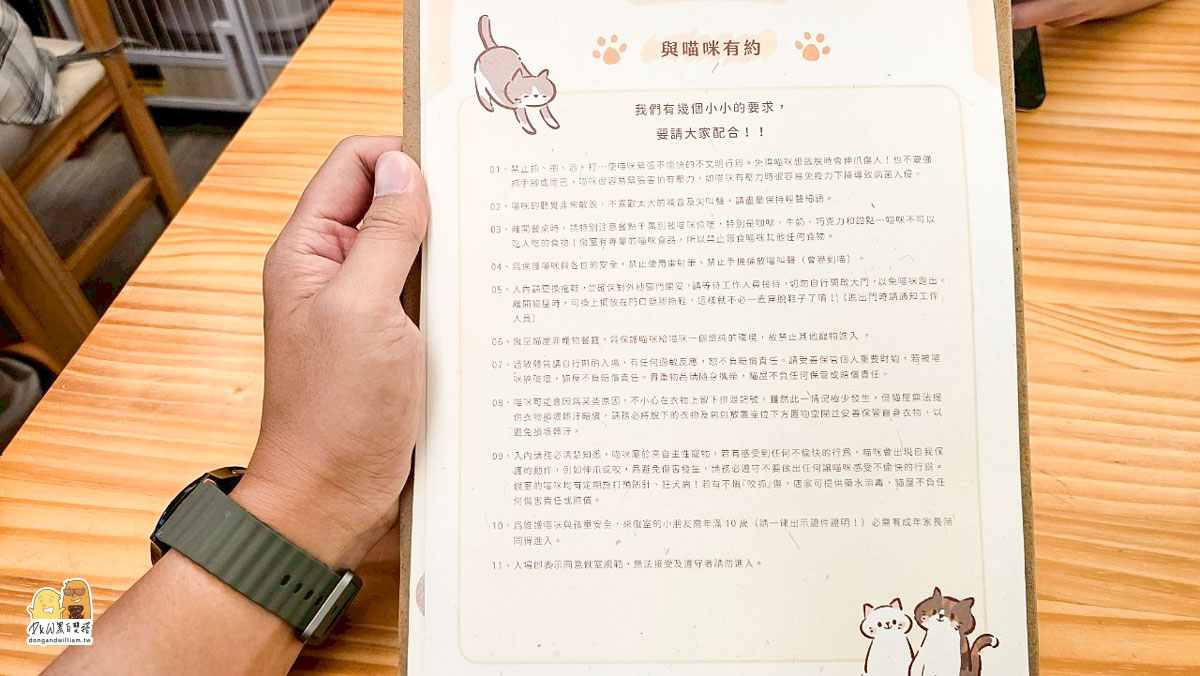 與喵咪有約
我們有幾個小小的要求，
要請大家配合！！
01、禁止抓、抱、追、打…使喵咪緊張不愉快的不文明行為。免得喵咪想逃脫時會伸爪傷人！也不要強
抓手腳或尾巴，喵咪很容易緊張害怕有壓力，如喵咪有壓力時很容易免疫力下降導致病菌入侵。
02、喵咪的聽覺非常敏銳，不喜歡太大的噪音及尖叫聲，請盡量保持輕聲細語。
03、離開餐桌時，請特別注意餐點千萬別被喵咪偷吃，特別是咖啡、牛奶、巧克力和甜點…喵咪不可以
吃人吃的食物！侘室有專屬的喵咪食品，所以禁止餵食喵咪其他任何食物。
04、為保護喵咪與各位的安全，禁止使用雷射筆、禁止手機播放喵叫聲（會嚇到喵）。
05、入內請更換拖鞋，並確保對外紗窗門關妥，請等待工作人員接待，切勿自行開啟大門，以免喵咪跑出。
離開貓屋時，可換上擺放在門口塑膠拖鞋，這樣就不必一直穿脫鞋子了唷！（進出門時請通知工作
人員）
06、侘室貓屋非寵物餐廳，為保護喵咪給喵咪一個單純的環境，敬禁止其他寵物進入。
07、過敏體質請自行斟酌入場，有任何過敏反應，恕不負賠償責任。請妥善保管個人重要財物，若被喵
咪摔破壞，貓屋不負賠償責任。貴重物品請隨身攜帶，貓屋不負任何保管或賠償責任。
08、喵咪可能會因為某些原因，不小心在衣物上留下排泄記號，雖然此一情況極少發生，但貓屋無法提
供衣物損壞髒汙賠償，請務必將脫下的衣物及包包放置座位下方置物空間並妥善保管自身衣物，以
避免損壞髒汙。
09、入內請務必清楚知悉，喵咪屬於來自主性寵物，若有感受到任何不愉快的行為，喵咪會出現自我保
護的動作，例如伸爪或咬，為避免傷害發生，請務必遵守不要做出任何讓喵咪感受不愉快的行為。
侘室的喵咪均有定期施打預防針、狂犬病！若有不慎『咬抓』傷，店家可提供藥水消毒，貓屋不負任
何傷害責任或賠償。
10、為維護喵咪與孩童安全，來侘室的小朋友需年滿10歲（請一律出示證件證明！）必需有成年家長陪
同得進入。
11、入場即表示同意侘室規範，無法接受及遵守者請勿進入。
dongandwilliam.tw